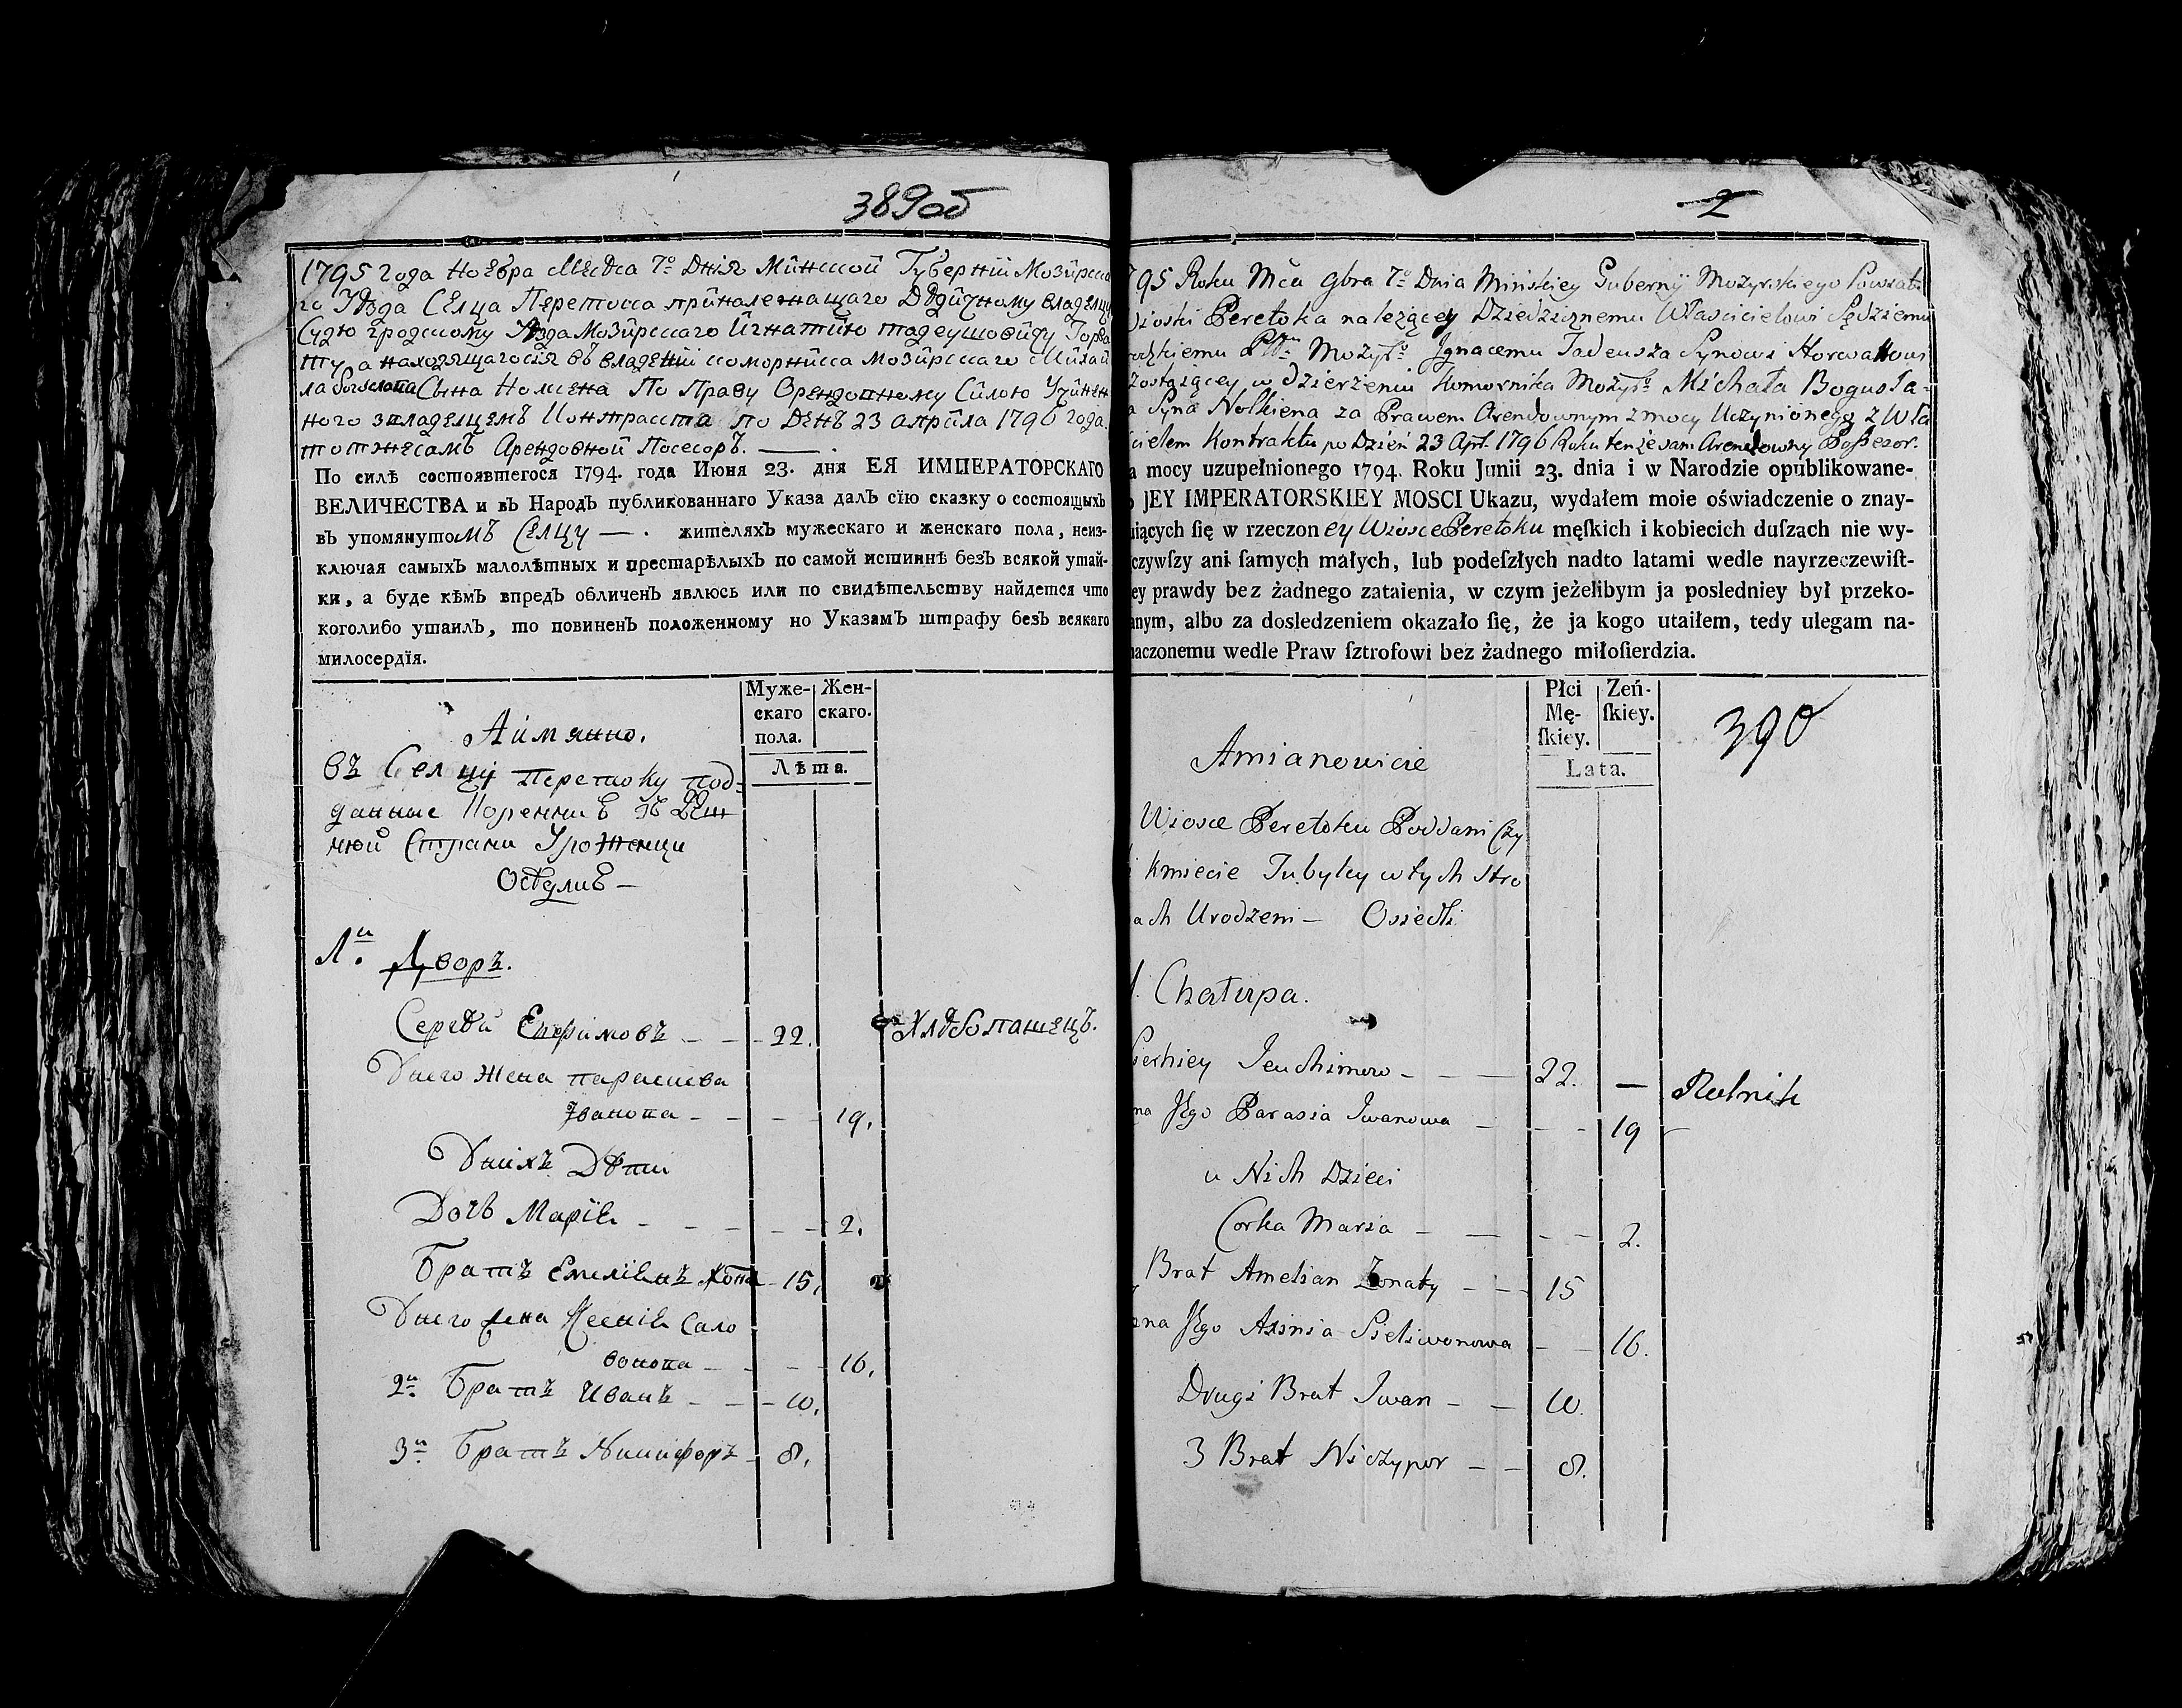 389об
1795 года Ноебра Месяца 7º Дня Минской Губерніи Мозирска
го Уѣзда Селца Перетока приналежащаго Дѣдичному владелцу
Судю гродскому Уѣзда Мозирскаго Игнатию Тадеушовичу Горва
ту а находящагося въ владеніи коморника мозирскаго Михай
ла богуслава Сына Нолкена По Праву Орендовному Силою Учинен
ного звладелцемъ Контракта по День 23 априла 1796 года.
тотжесамъ Арендовной Посесоръ.
По силѣ состоявшегося 1794. года Июня 23. дня ЕЯ ИМПЕРАТОРСКАГО
ВЕЛИЧЕСТВА и въ Народъ публикованнаго Указа далъ сїю сказку о состоящыхъ
въ упомянутомъ Селцу — . жителяхъ мужескаго и женскаго пола, неиз-
ключая самыхъ малолѣтныхъ и престарѣлыхъ по самой истиннѣ безъ всякой утай-
ки, а буде кѣмъ впредъ обличенъ явлюсь или по свидѣтельству найдется что
коголибо утаилъ, то повиненъ положенному но Указамъ штрафу безъ всякаго
милосердїя.
Муже-
скаго
пола.
Жен-
скаго.
Лѣта.
Аимянно.
въ Селцу Перетоку под-
данные Коренни
Страни Уроженци
Оседли —
1й. Дворъ.
Сергѣй Ефимовъ — — 22. Хлѣбопашецъ.
Унего Жена парасцева
Іванова — — — 19.
Унихъ Дѣти
Дочь Марія — — — 2.
Братъ Емеліянъ Жона - 15.
Унего жена Ксенія Сало
вонова — — — 16.
2й Братъ Иванъ — — 10.
3й Братъ Никифоръ - 8.
2
795 Roku Mca 9bra 7º Dnia Minskiey Guberny Mozyrskiego Powiatu
Wioski Peretoka należącey Dziedzicznemu Własicielowi Sędziemu
rodzkiemu Pttu Mozyrº Ignacemu Tadeusza Synowi Horwattowi
zostaiącey w dzierżeniu Komornika Mozyrº Michała Bogusła-
a Syna Nolkiena za Prawem Arendownym z mocy Uczynionego z Wła
cielem Kontraktu po Dzień 23 Apr. 1796 Roku tenże sam Arendowny Possesor.
a mocy uzupełnionego 1794. Roku Junii 23. dnia i w Narodzie opublikowane-
o JEY IMPERATORSKIEY MOSCI Ukazu, wydałem moie oświadczenie o znay-
uiących ſię w rzeczoney Wiosce Peretoku męſkich i kobiecich duſzach nie wy-
czywſzy ani ſamych małych, lub podeſzłych nadto latami wedle nayrzeczewiſt-
ey prawdy bez żadnego zataienia, w czym jeżelibym ja posledniey był przeko-
anym, albo za dosledzeniem okazało ſię, że ja kogo utaiłem, tedy ulegam na-
naczonemu wedle Praw ſztrofowi bez żadnego miłoſierdzia.
Płci
Mę-
ſkiey.
Zeń-
ſkiey.
Lata.
390
Amianowicie
Wiosce Peretoku Poddani Czy
i kmiecie Tubylcy w tych stro
ach Urodzeni — Osiedli
1. Chatupa.
Sierhiey Jeuchimow - — — 22. — Rolnik
na Jego Parasia Iwanowa — - - 19
u Nich Dzieci
Corka Marya — — - - 2.
Brat Amelian Żonaty — - 15
ona Jego Axinia Sieliwonowa - — 16.
Drugi Brat Iwan — — 10.
3 Brat Niczypor — — 8.